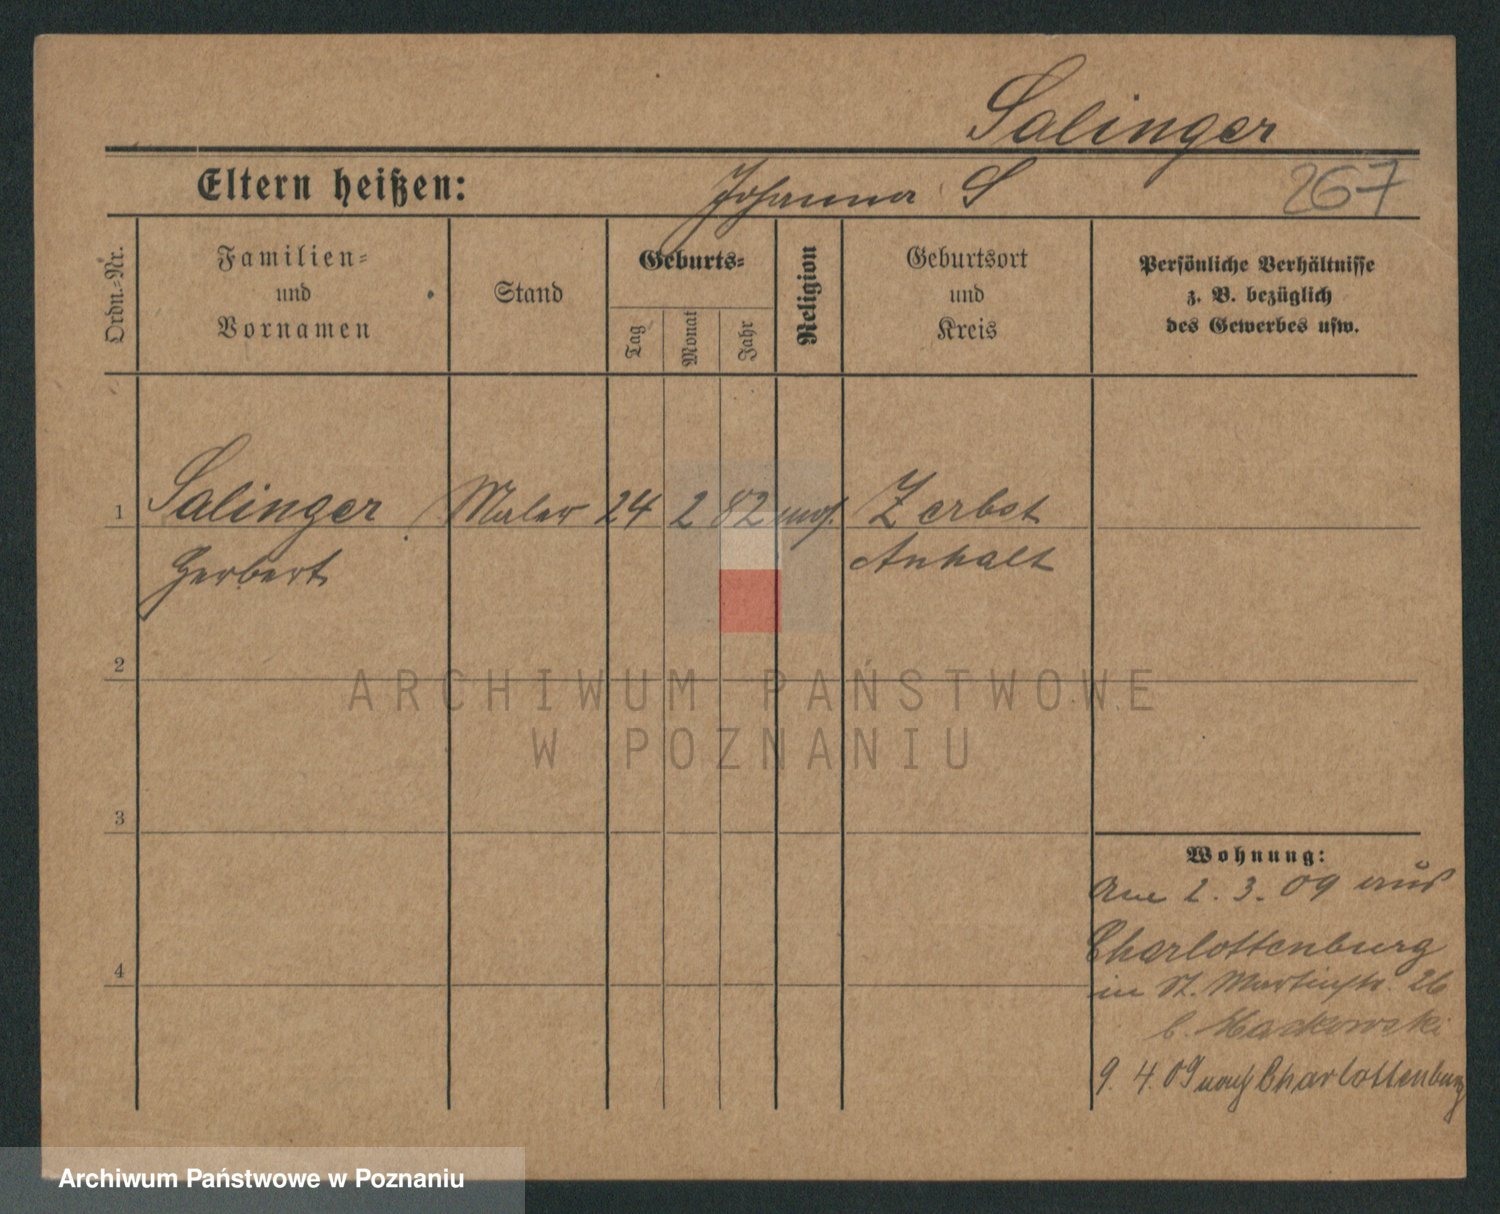 Salinger
Eltern heißen: Johanna S
267
Ordn.-Nr.
Familien-
und
Vornamen
Stand
Geburts-
Tag
Monat
Jahr
Religion
Geburtsort
und
Kreis
Persönliche Verhältnisse
z. B. bezüglich
des Gewerbes usw.
1 Salinger Maler 24 2 82 Zerbst
Herbert Anhalt
2
ARCHIWUM PAŃSTWOWE
W POZNANIU
3
Wohnung:
Am 2. 3. 09 aus
Charlottenburg
4
in St. Martinstr. 26
b. Mackowski
9. 4. 09 nach Charlottenburg
Archiwum Państwowe w Poznaniu